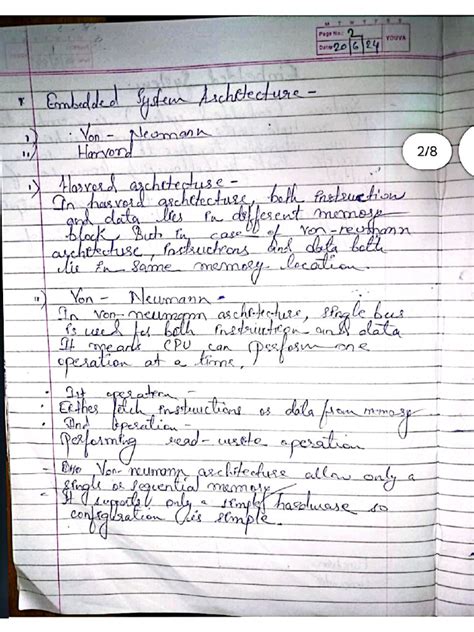 M T W T F S S
Page No.: 2
Date: 20 6 24
YOUVA
2/8
* Embedded System Architecture -
i) Von - Neumann
ii) Harvard
i) Harvard architecture -
In harvard architecture, both instruction
and data lies in different memory
block, But in case of von-neumann
architecture, instructions and data both
lie in same memory location.
ii) Von - Neumann -
In von-neumann architecture, single bus
is used for both instruction and data
It means CPU can perform one
operation at a time.
• Ist operation -
Either fetch instructions or data from mmory
• IInd operation -
Performing read-write operation
- Von-neumann architecture allow only a
single or sequential memory
- It supports only a simple hardware so
configuration is simple.